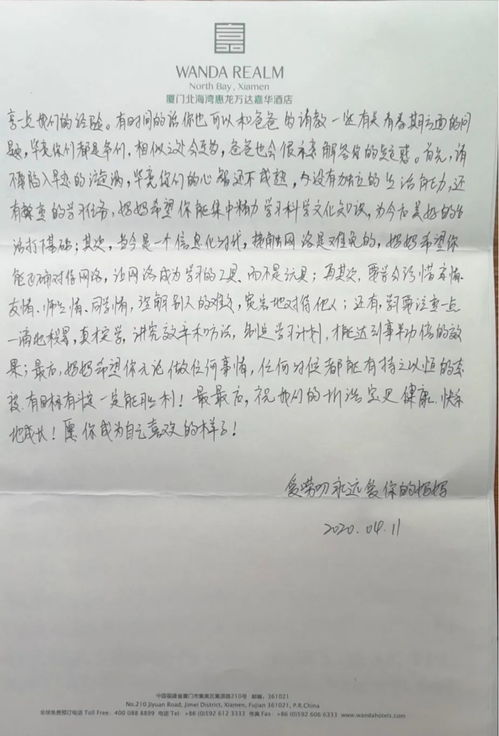 WANDA REALM
North Bay, Xiamen
厦门北海湾惠龙万达嘉华酒店
享一点我们的经验。有时间的话你也可以和爸爸的请教一些有关青春期方面的问
题，毕竟你们都是男的，相似之处会更多，爸爸也会很乐意解答你的疑惑。首先，请
不要陷入早恋的漩涡，毕竟你们的心智还不成熟，也没有独立的生活能力，还
有繁重的学习任务，妈妈希望你能集中精力学习科学文化知识，为今后美好的生
活打下基础；其次，当今是一个信息化时代，接触网络是难免的，妈妈希望你
能正确对待网络，让网络成为学习的工具、而不是玩具；再其次，要学会珍惜亲情、
友情、师生情、同学情，理解别人的难处，宽容地对待他人；还有，学习要注重一点
一滴地积累，真才实学，讲究效率和方法，制定学习计划，才能达到事半功倍的效
果；最后，妈妈希望你无论做任何事情，任何时候都能有持之以恒的态
度，有目标有斗志一定能胜利！最最后，祝我们的 宝贝健康、快乐
地成长！愿你成为自己喜欢的样子！
爱劳叨永远爱你的妈妈
2020.04.11
中国福建省厦门市集美区集源路210号 邮编：361021
No.210 Jiyuan Road, Jimei District, Xiamen, Fujian 361021, P.R.China
全球免费预订电话 Toll Free. 400 088 8899 电话 Tel +86 (0)592 612 3333 传真 Fax +86 (0)592 606 6333 www.wandahotels.com